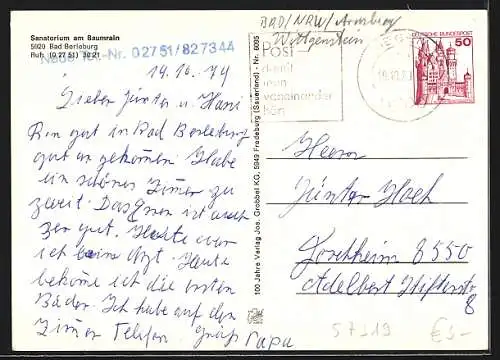 Sanatorium am Baumrain
5920 Bad Berleburg
Ruf: (0 27 51) 30 21
Neue Tel.-Nr. 0 27 51 / 82 73 44
BAD/NRW/Arnsberg
Wittgenstein
POST
damit
man
voneinander
hört
DEUTSCHE BUNDESPOST
50
19.10.79
Lieber Günter u. Hans
Bin gut in Bad Berleburg
gut angekommen. Habe
ein schönes Zimer zu
zweit. Das Essen ist auch
zer gut. Heute war
ich beim Arzt. Heute
bekome ich die ersten
Bäder. Ich habe auf den
Zimer Telefon. Grüß Papa
100 Jahre Verlag Jos. Grobbel KG, 5949 Fredeburg (Sauerland) - Nr. 6035
Herrn
Günter Hoch
Forchheim 8550
Adelbert Stifterstr
8
57319
€ 3-